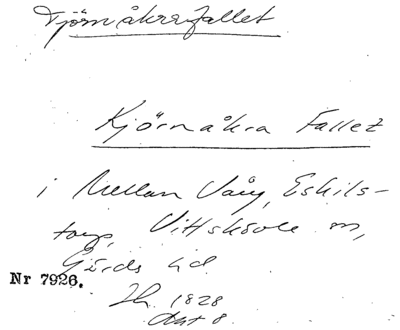 Tjörnåkrafallet
Kjörnåkra Fallet
i Mellan Vång, Eskils-
torp, Vittskövle sn,
Gärds hd
Nr 7926.
Lh. 1828
akt 8.